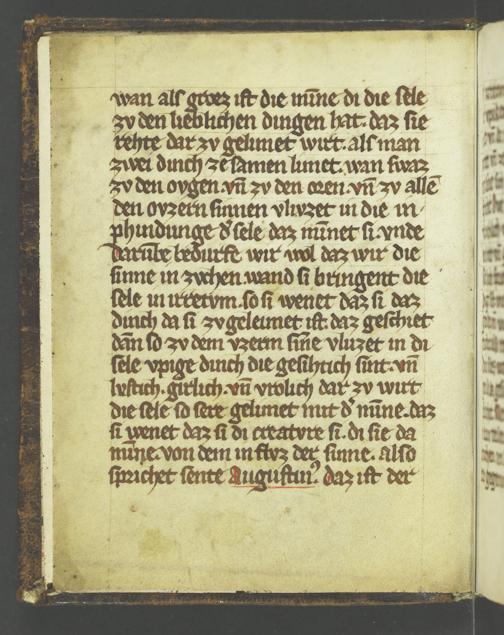 wan als groez ist die minne di die sele
zv den lieblichen dingen hat. daz sie
rehte dar zv gelimet wirt. als man
zwei dinch ze samen limet. wan swaz
zv den ovgen. vn̄ zv den oren. vn̄ zv allē
den ovzern sinnen vluzet in die in
phindunge d' sele daz minnet si. vnde
darūbe bedurfe wir wol daz wir die
sinne in zychen. wand si bringent die
sele in irretvm. so si wenet daz si daz
dinch da si zv geleimet ist. daz geschiet
dan so zv dem vzerm sinē vluzet in di
sele vpige dinch die gesihtich sint. vn̄
lvstich. girlich. vn̄ vrolich dar zv wirt
die sele so sere gelimet mit d' minne. daz
si wenet daz si di creatvre si. di sie da
minne. von dem in flvz der sinne. also
sprichet sente Augustin'. daz ist der